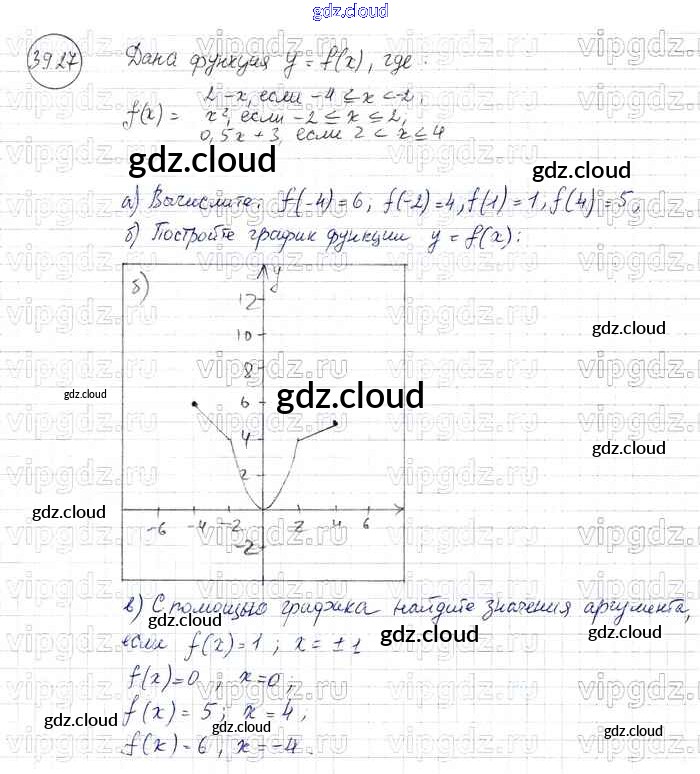 gdz.cloud
39.27 Дана функция y = f(x), где:
2-x, если -4 ≤ x < -2,
f(x) = x², если -2 ≤ x ≤ 2,
0,5x + 3, если 2 < x ≤ 4
gdz.cloud
gdz.cloud
а) Вычислите: f(-4) = 6, f(-2) = 4, f(1) = 1, f(4) = 5,
б) Постройте график функции y = f(x):
б) y
12
10
gdz.cloud
8
gdz.cloud
6
gdz.cloud
4
gdz.cloud
2
gdz.cloud
-6 -4 -2 2 4 6
-2
в) С помощью графика найдите значения аргумента,
gdz.cloud
если f(x) = 1; x = ±1
gdz.cloud
gdz.cloud
f(x) = 0; x = 0;
f(x) = 5; x = 4,
gdz.cloud
gdz.cloud
gdz.cloud
f(x) = 6, x = -4.
vipgdz.ru